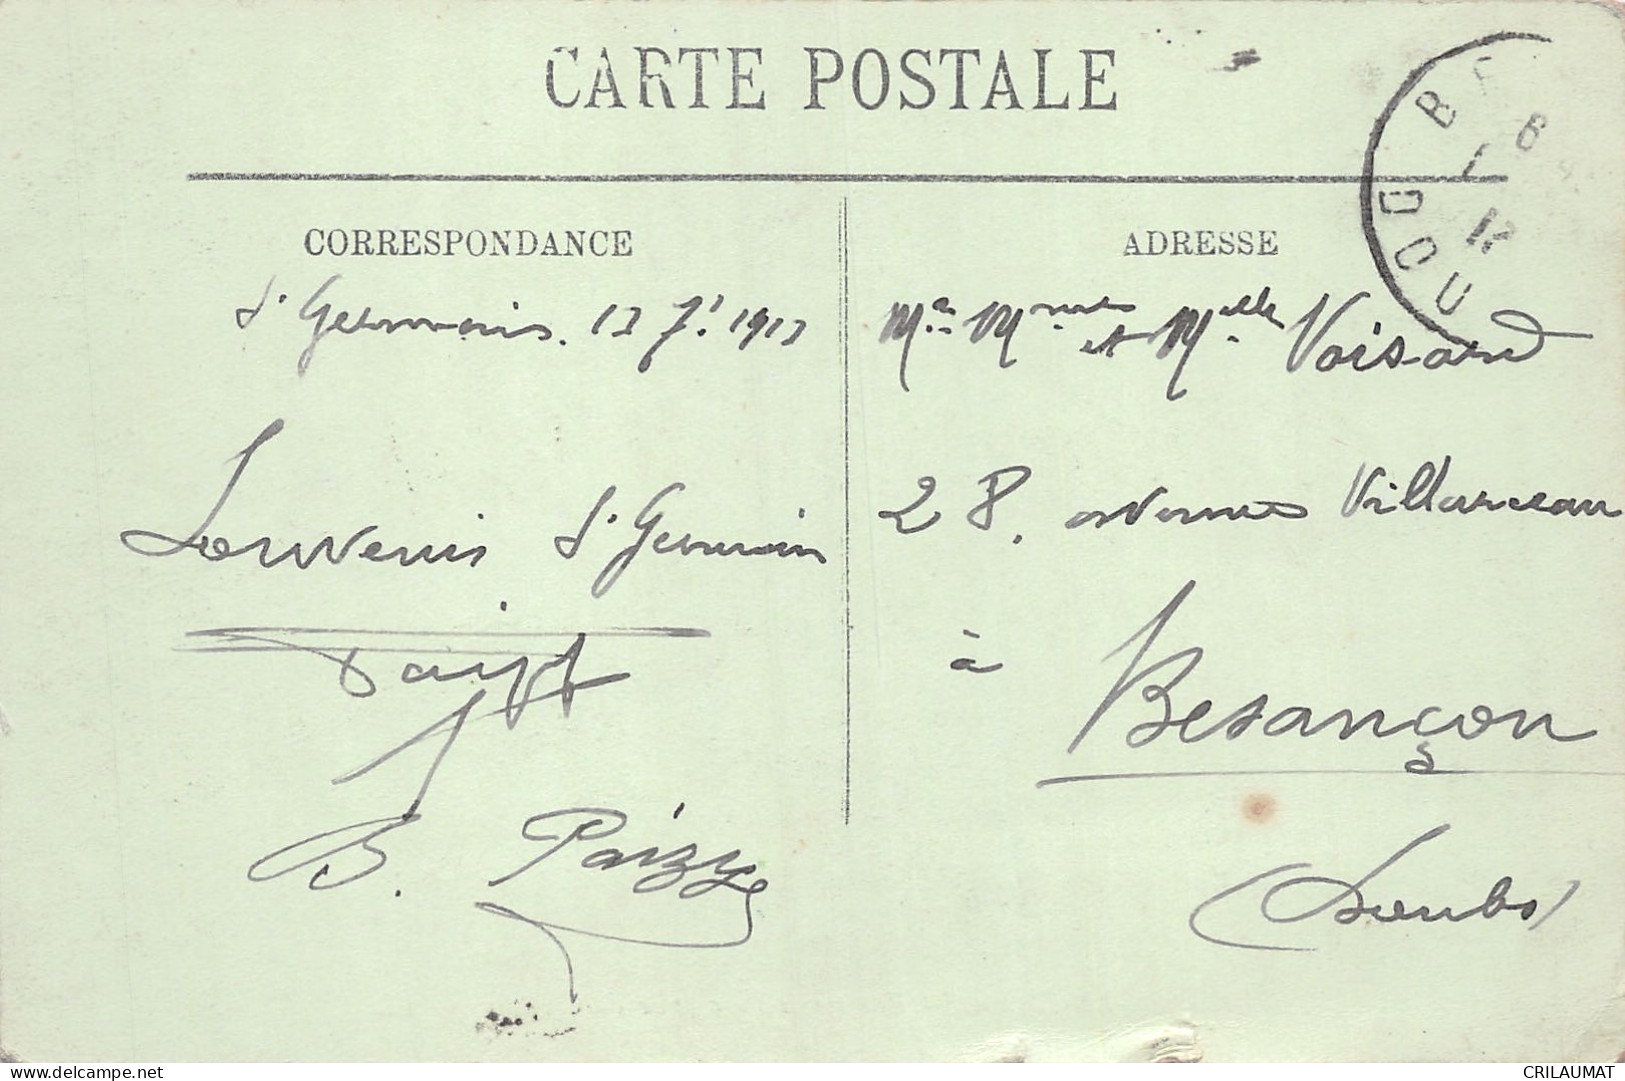 CARTE POSTALE
CORRESPONDANCE
St Germain. 13 7r 1913
Souvenir St Germain
B. Paizy
ADRESSE
Mr Mme et Melle Voisard
28. avenue Villarceau
à
Besançon
(Doubs)
DOUB
www.delcampe.net
CRILAUMAT